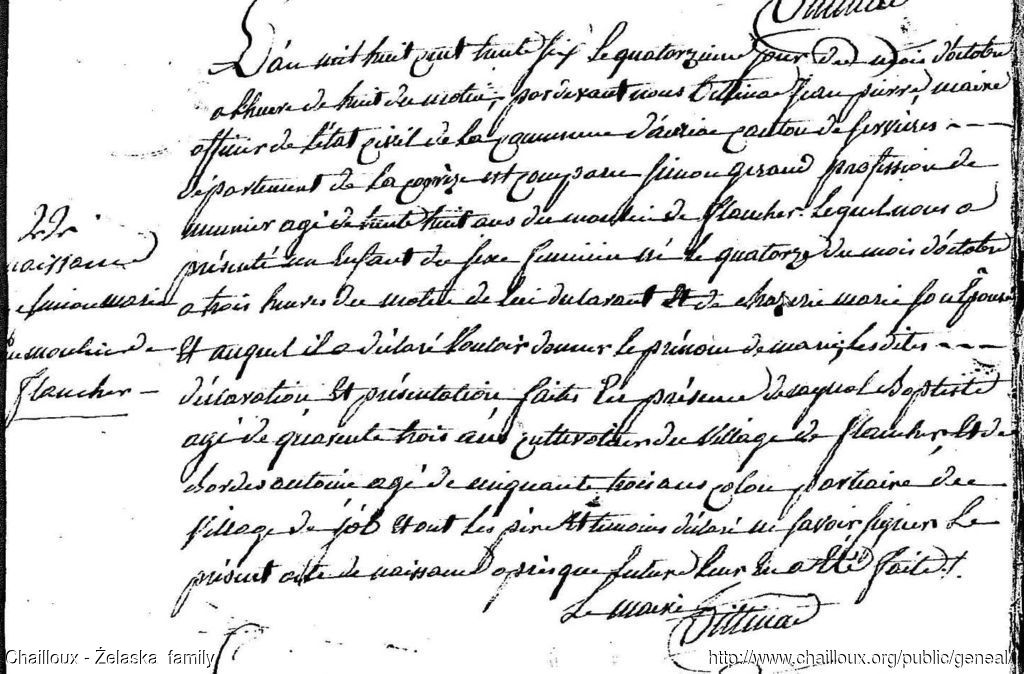 L'an mil huit cent trente six le quatorzieme jour du mois d'octobre
a lheure de huit du matin, pardevant nous Jean pierre maire
officier de létat civil de la commune d'auriac canton de servières
département de la correze est comparu simon geraud profession de
munier agé de trente huit ans du moulin de flancher lequel nous a
présenté un enfant du sexe feminin né le quatorze du mois d'octobre
a trois heures du matin de lui declarant et de marie son épouse
Et auquel il a déclaré vouloir donner le prénom de marie, les dites
déclaration et présentation faites en présence de Baptiste
agé de quarente trois ans cultivateur du village de flancher et de
bordes antoine agé de cinquante trois ans colon partiaire du
village de job et ont les père et temoins déclaré ne savoir signer le
présent acte de naissance apres que lecture leur en a été faite.
Le maire
22e
naissance
simon marie
du moulin de
flancher
Chailloux - Żelaska family
http://www.chailloux.org/public/geneal/